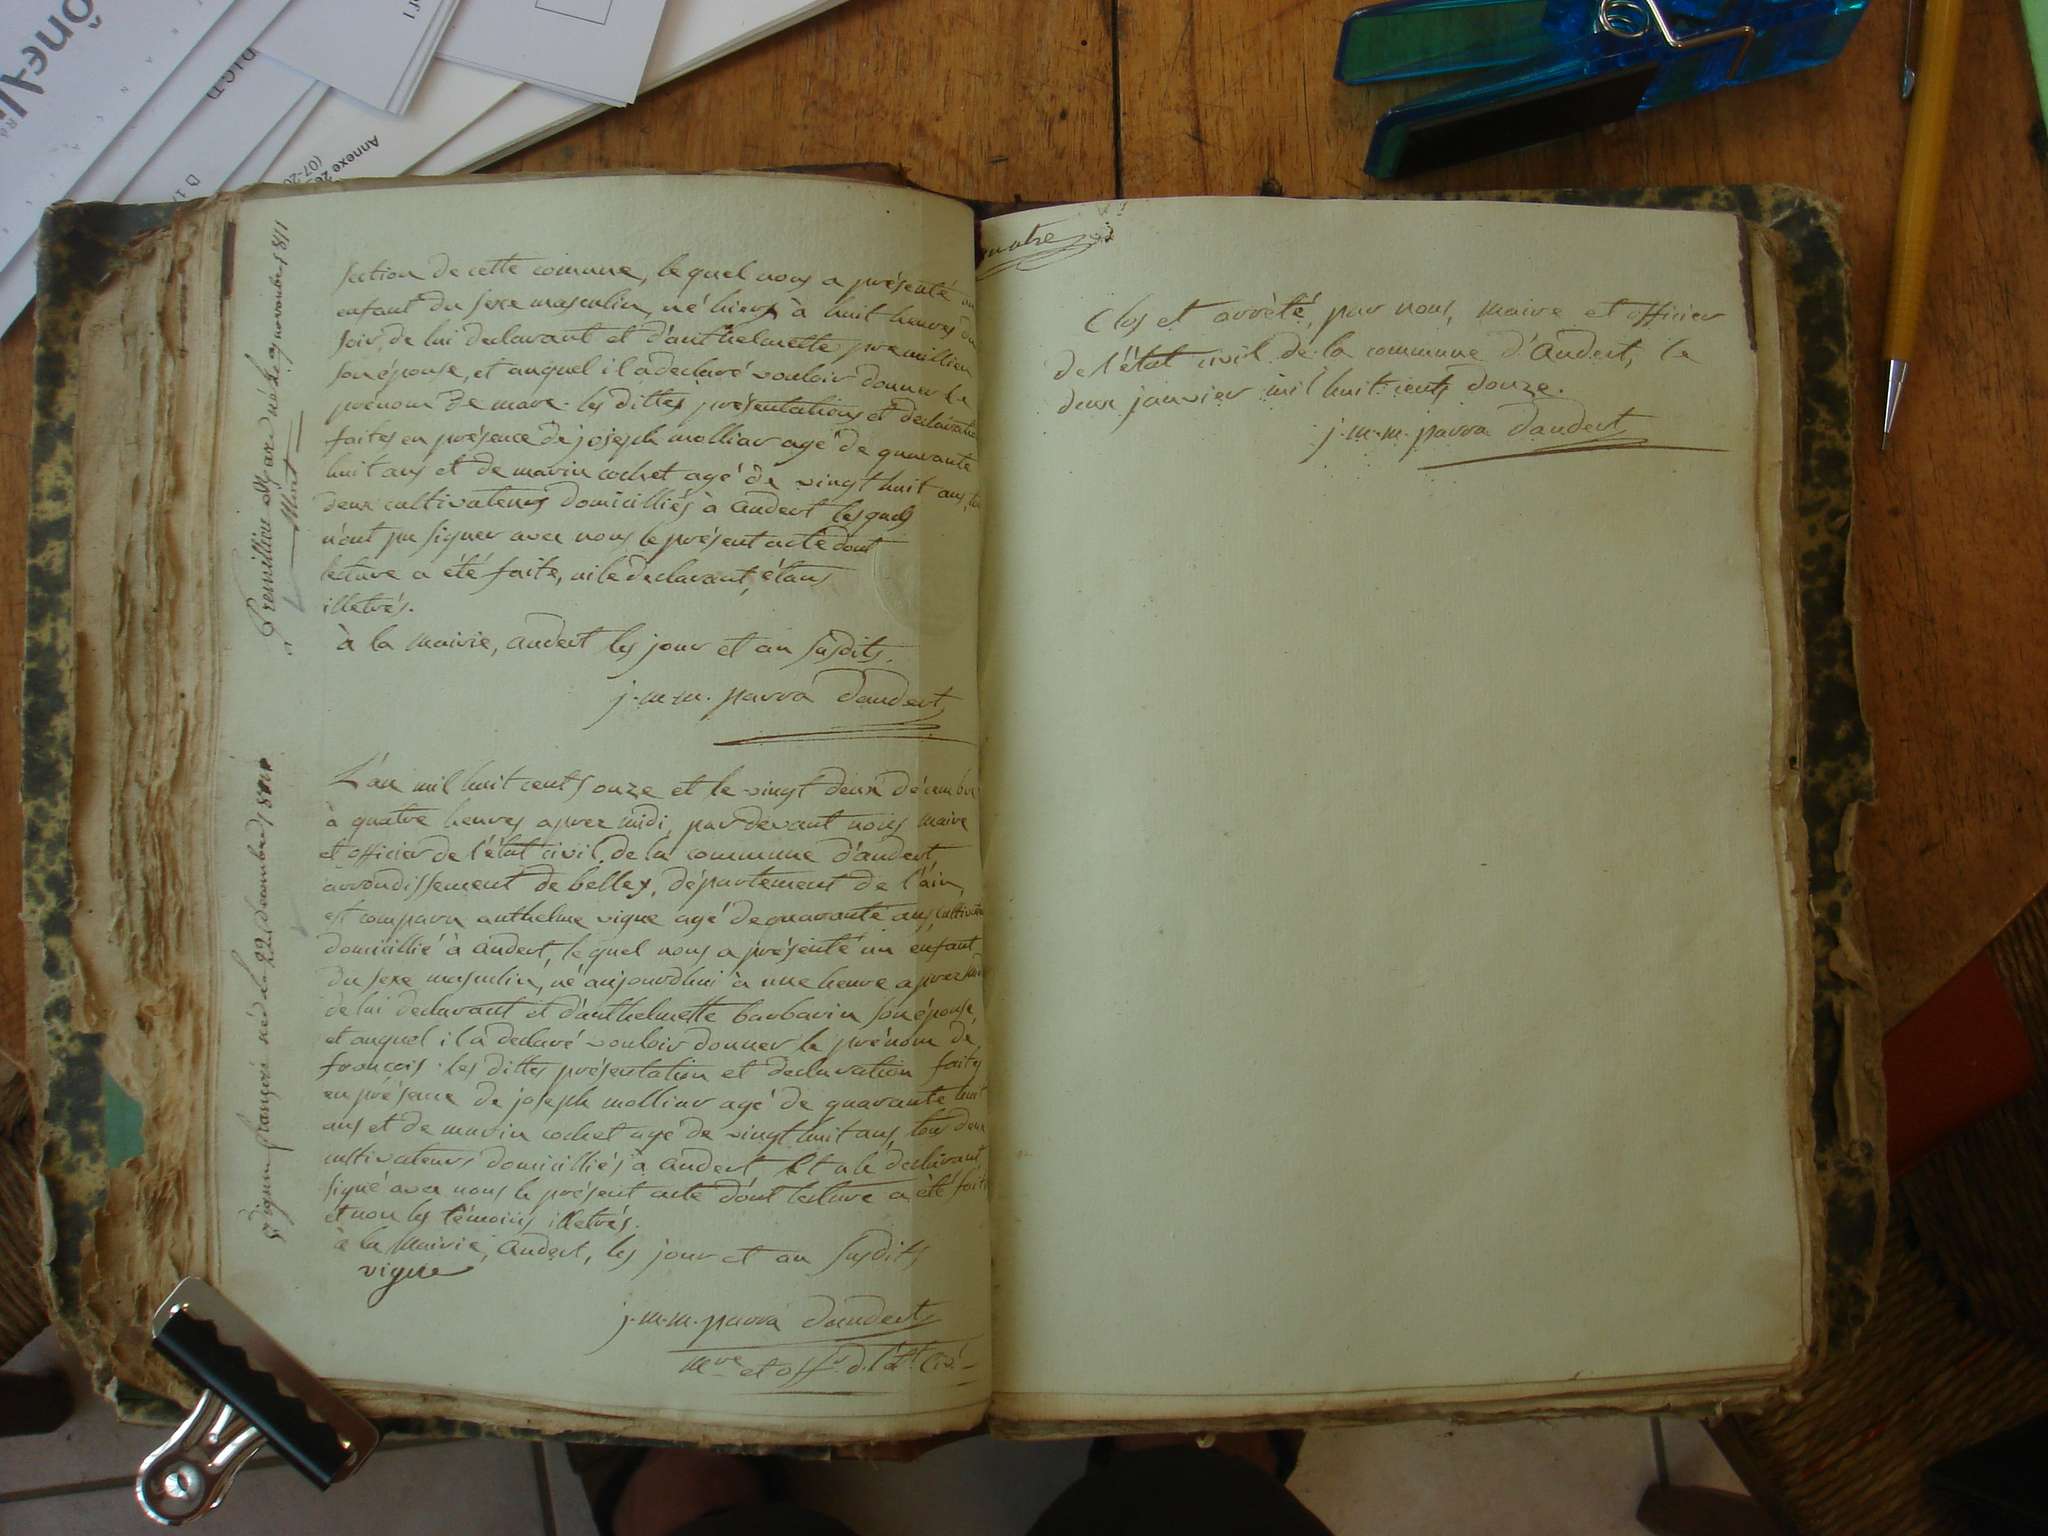 section de cette comune, lequel nous a présenté un
enfant du sexe masculin, né hiers à huit heures du
soir, de lui declarant et d'anthelmette premillieu
son épouse, et auquel il a declaré vouloir donner le
prénom De marc. les dittes présentations et declaration
faites en présence de joseph molliar agé de quarante
huit ans et de marin cochet agé de vingt huit ans, tous
deux cultivateurs domicilliés à andert lesquels
n'ont pu signer avec nous le présent acte dont
lecture a été faite, ni le declarant, étans
illetrés.
à la mairie, andert les jour et an susdits.
j. m. m. parra d'andert
né le 29 novembre 1811
L'an mil huit cents onze et le vingt deux décembre
à quatre heures aprez midi, pardevant nous maire
et officier de l'état civil de la commune d'andert,
arrondissement de belley, département de l'ain,
est comparu anthelme vigne agé de quarante ans cultivateur
domicillié à andert, lequel nous a présenté un enfant
du sexe masculin, né aujourdhui à une heure aprez midi
de lui declarant et d'anthelmette barbarin son épouse,
et auquel il a declaré vouloir donner le prénom de
françois. les dittes présentation et declaration faites
en présence de joseph molliar agé de quarante huit
ans et de marin cochet agé de vingt huit ans, tous deux
cultivateurs domicilliés à andert Et a le declarant
signé avec nous le présent acte dont lecture a été faite
et non les témoins illetrés.
à la mairie, andert, les jour et an susdits
vigne
j. m. m. parra d'andert
mre et offr. d. l'ét. civ.
françois né le 22 décembre 1811
Clos et arrêté, par nous, maire et officier
de l'état civil de la commune d'andert, le
deux janvier mil huit cents douze.
j. m. m. parra d'andert
Annexe